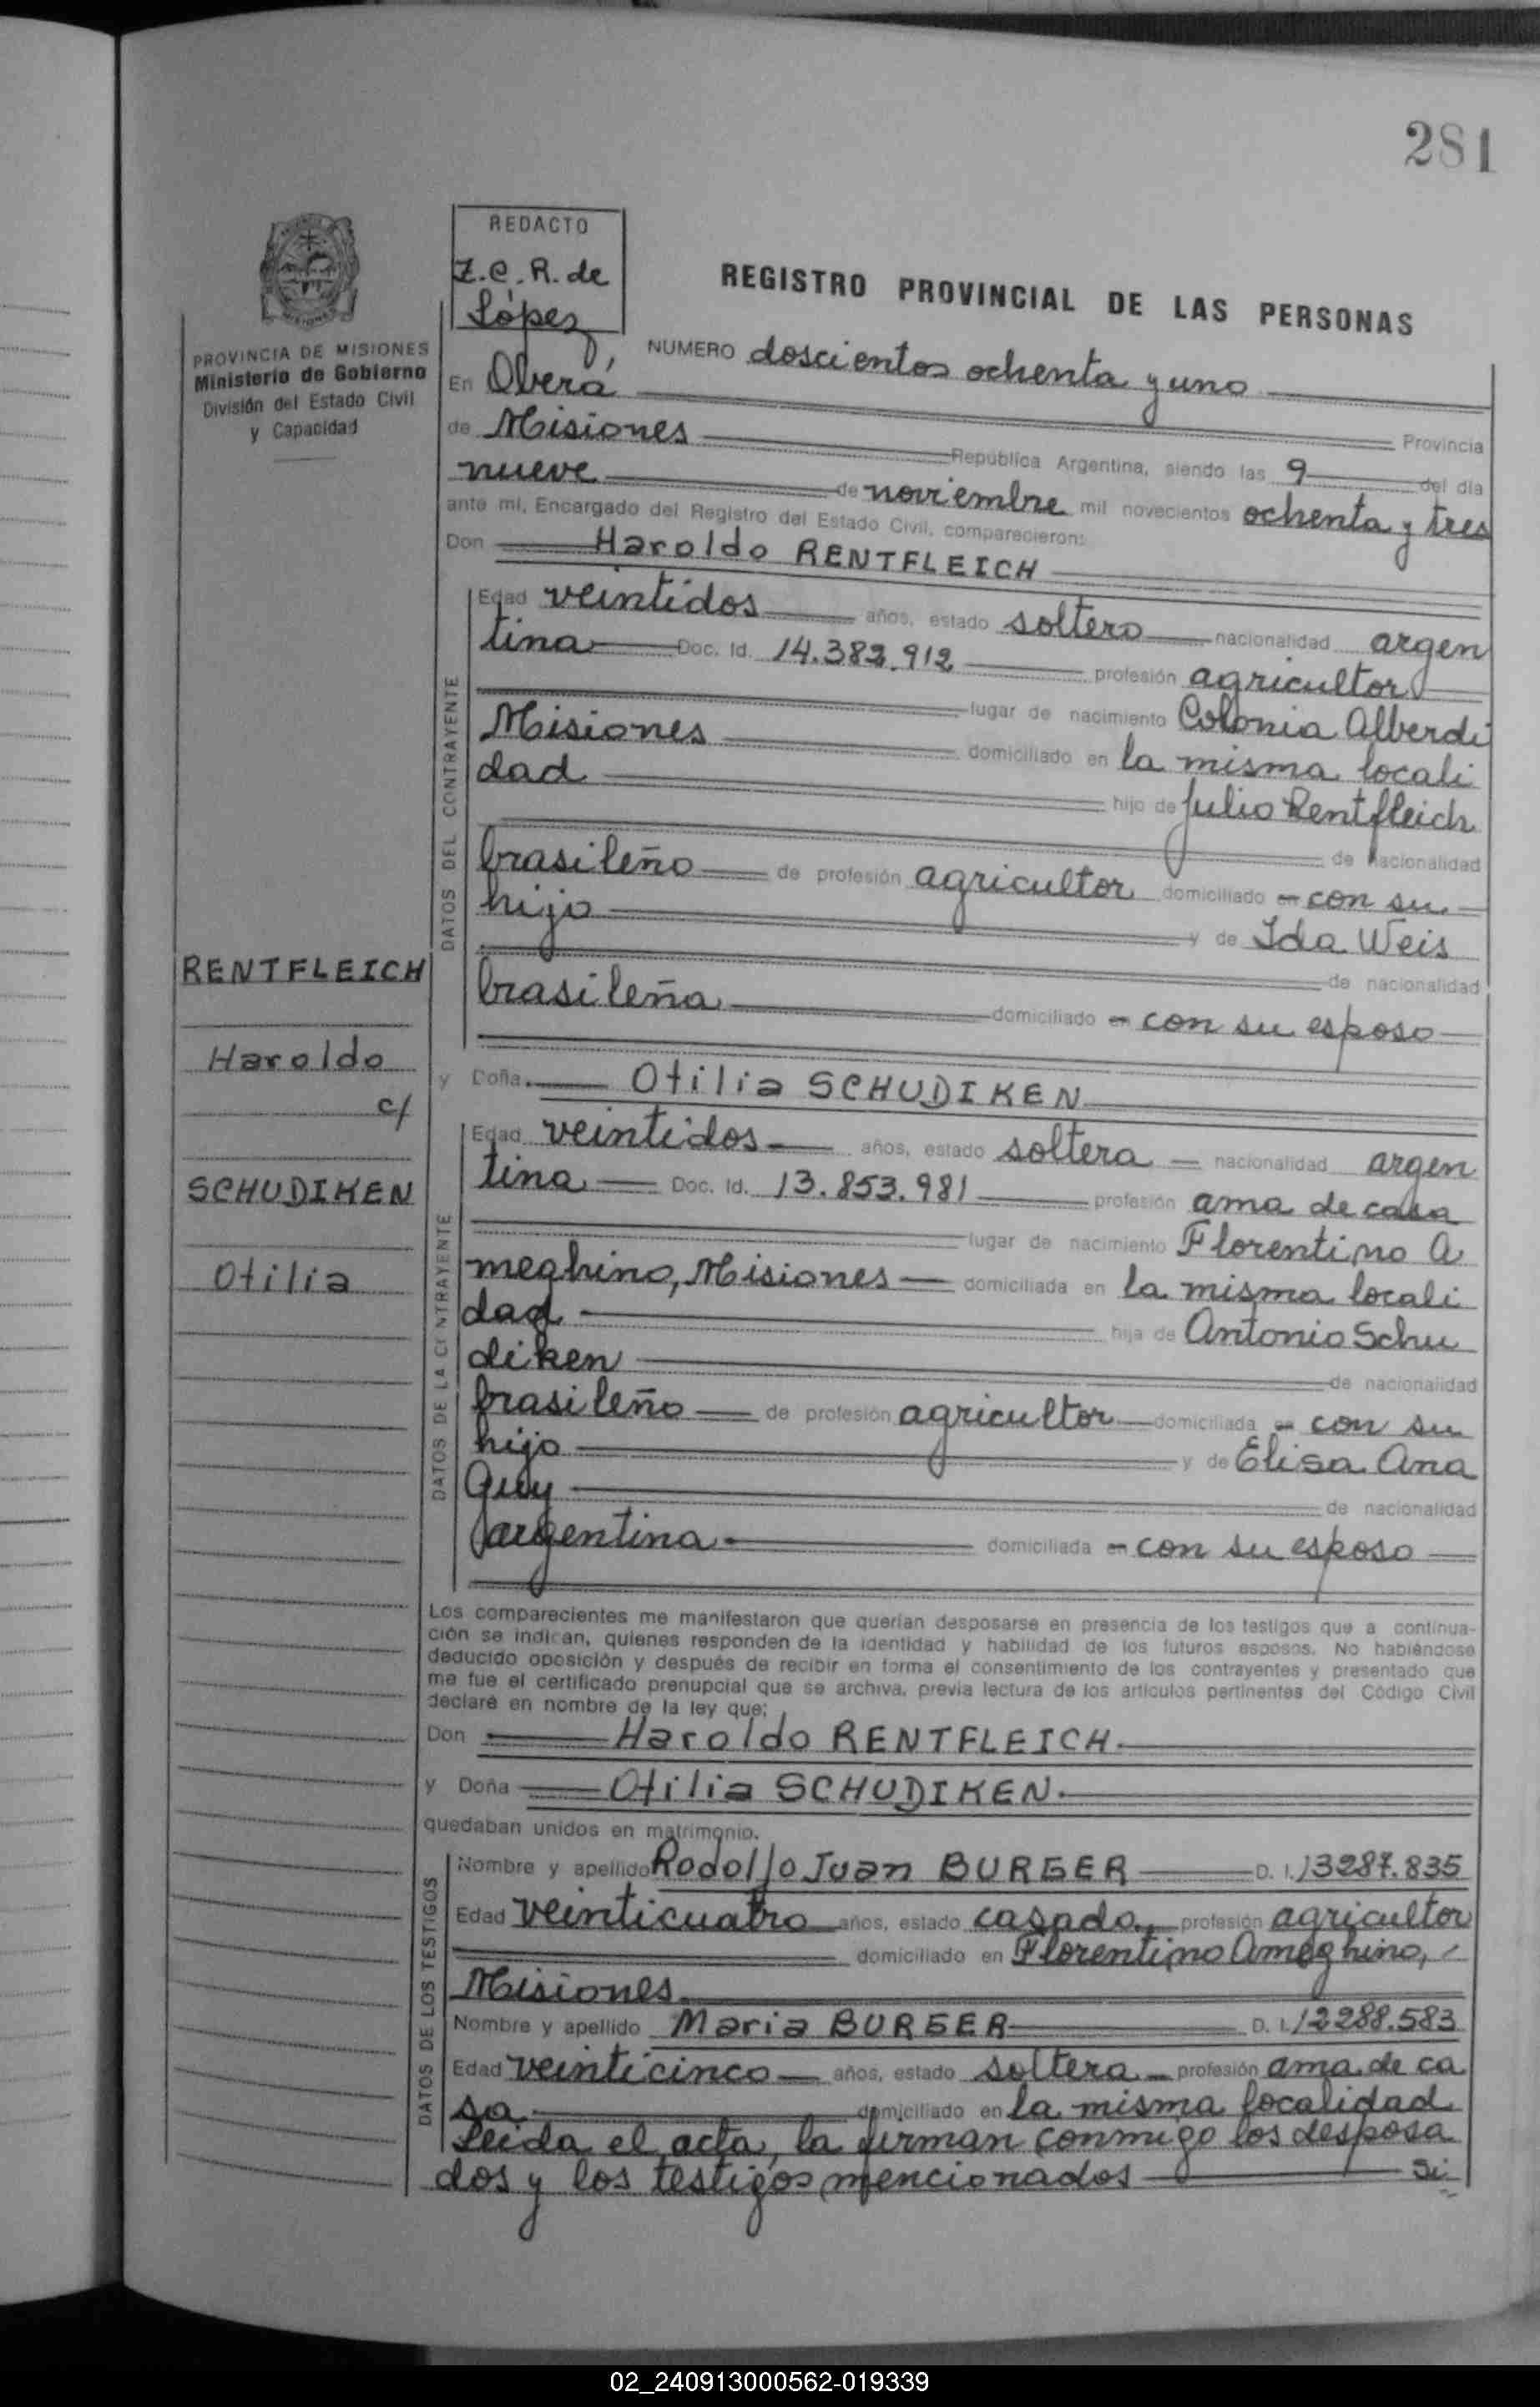 281
REDACTO
Z.C.R. de
López
REGISTRO PROVINCIAL DE LAS PERSONAS
PROVINCIA DE MISIONES
Ministerio de Gobierno
División del Estado Civil
y Capacidad
NUMERO doscientos ochenta y uno
En Oberá
Provincia
de Misiones República Argentina, siendo las 9 del día
nueve de noviembre mil novecientos ochenta y tres
ante mi, Encargado del Registro del Estado Civil, comparecieron:
Don Haroldo RENTFLEICH
DATOS DEL CONTRAYENTE
Edad veintidos años, estado soltero nacionalidad argen
tina Doc. Id. 14.383.912 profesión agricultor
lugar de nacimiento Colonia Alberdi
Misiones domiciliado en la misma locali
dad hijo de Julio Rentfleich
de nacionalidad
brasileño de profesión agricultor domiciliado en con su
hijo y de Ida Weis
de nacionalidad
brasileña domiciliado en con su esposo
RENTFLEICH
Haroldo
c/
SCHUDIKEN
Otilia
y Doña Otilia SCHUDIKEN
DATOS DE LA CONTRAYENTE
Edad veintidos años, estado soltera nacionalidad argen
tina Doc. Id. 13.853.981 profesión ama de casa
lugar de nacimiento Florentino A
meghino, Misiones domiciliada en la misma locali
dad hija de Antonio Schu
diken de nacionalidad
brasileño de profesión agricultor domiciliada en con su
hijo y de Elisa Ana
Guy de nacionalidad
argentina domiciliada en con su esposo
Los comparecientes me manifestaron que querian desposarse en presencia de los testigos que a continua-
ción se indican, quienes responden de la identidad y habilidad de los futuros esposos. No habiéndose
deducido oposición y después de recibir en forma el consentimiento de los contrayentes y presentado que
me fue el certificado prenupcial que se archiva, previa lectura de los artículos pertinentes del Código Civil
declaré en nombre de la ley que:
Don Haroldo RENTFLEICH.
y Doña Otilia SCHUDIKEN.
quedaban unidos en matrimonio.
DATOS DE LOS TESTIGOS
Nombre y apellido Rodolfo Juan BURGER D. I. 13287.835
Edad veinticuatro años, estado casado profesión agricultor
domiciliado en Florentino Ameghino,
Misiones
Nombre y apellido Maria BURGER D. I. 12288.583
Edad veinticinco años, estado soltera profesión ama de ca
sa domiciliado en la misma localidad
Leida el acta, la firman conmigo los desposa
dos y los testigos mencionados Si
02_240913000562-019339